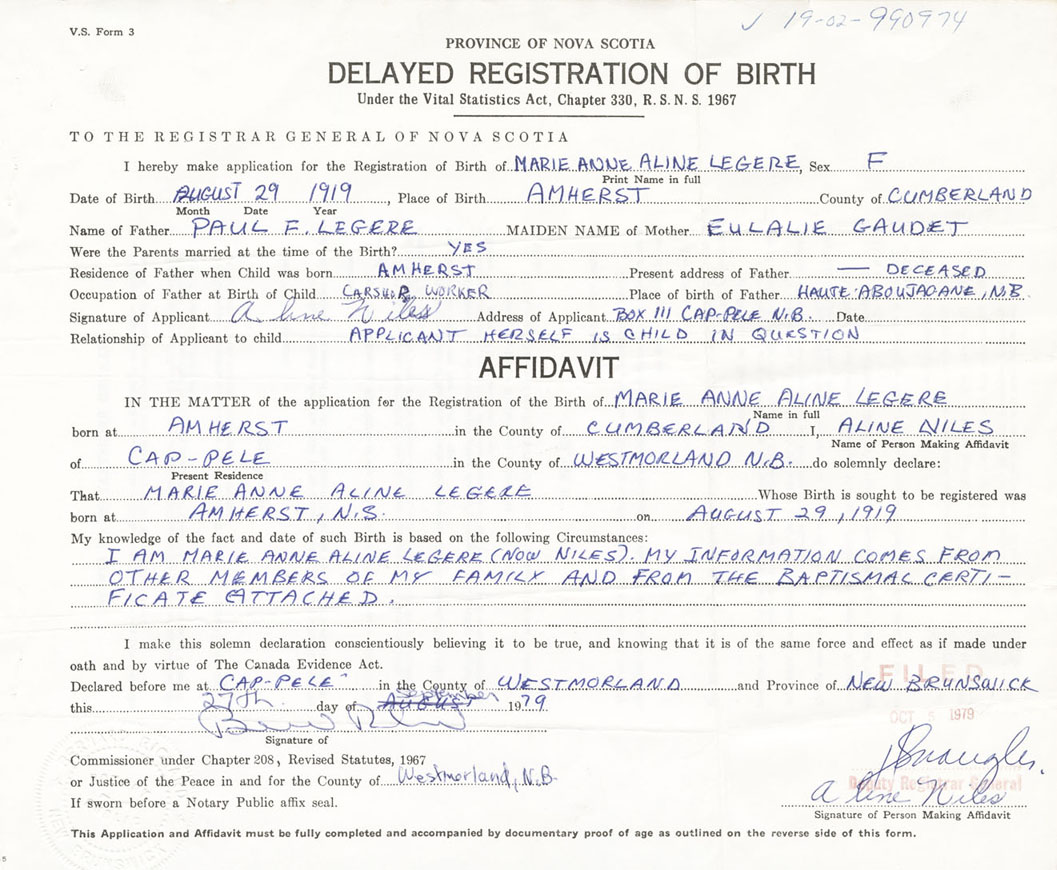 V.S. Form 3
J 19-02-990974
PROVINCE OF NOVA SCOTIA
DELAYED REGISTRATION OF BIRTH
Under the Vital Statistics Act, Chapter 330, R.S.N.S. 1967
TO THE REGISTRAR GENERAL OF NOVA SCOTIA
I hereby make application for the Registration of Birth of MARIE ANNE ALINE LEGERE, Sex F
Print Name in full
Date of Birth AUGUST 29 1919, Place of Birth AMHERST County of CUMBERLAND
Month Date Year
Name of Father PAUL F. LEGERE MAIDEN NAME of Mother EULALIE GAUDET
Were the Parents married at the time of the Birth? YES
Residence of Father when Child was born AMHERST Present address of Father — DECEASED
Occupation of Father at Birth of Child CARSHOP WORKER Place of birth of Father HAUTE-ABOUJAGANE, N.B.
Signature of Applicant Aline Niles Address of Applicant BOX 111 CAP-PELE N.B. Date
Relationship of Applicant to child APPLICANT HERSELF IS CHILD IN QUESTION
AFFIDAVIT
IN THE MATTER of the application for the Registration of the Birth of MARIE ANNE ALINE LEGERE
Name in full
born at AMHERST in the County of CUMBERLAND I, ALINE NILES
Name of Person Making Affidavit
of CAP-PELE in the County of WESTMORLAND N.B. do solemnly declare:
Present Residence
That MARIE ANNE ALINE LEGERE Whose Birth is sought to be registered was
born at AMHERST, N.S. on AUGUST 29, 1919
My knowledge of the fact and date of such Birth is based on the following Circumstances:
I AM MARIE ANNE ALINE LEGERE (NOW NILES). MY INFORMATION COMES FROM
OTHER MEMBERS OF MY FAMILY AND FROM THE BAPTISMAL CERTI-
FICATE ATTACHED.
I make this solemn declaration conscientiously believing it to be true, and knowing that it is of the same force and effect as if made under
oath and by virtue of The Canada Evidence Act.
FILED
Declared before me at CAP-PELE in the County of WESTMORLAND and Province of NEW BRUNSWICK
this 27th day of AUGUST September 1979
OCT 5 1979
Signature of
Commissioner under Chapter 208, Revised Statutes, 1967
or Justice of the Peace in and for the County of Westmorland, N.B.
Deputy Registrar General
If sworn before a Notary Public affix seal.
Aline Niles
Signature of Person Making Affidavit
This Application and Affidavit must be fully completed and accompanied by documentary proof of age as outlined on the reverse side of this form.
5